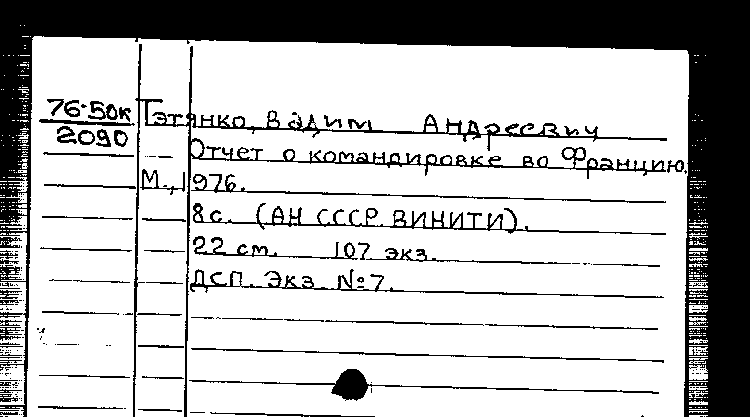 76-50к Тэтянко, Вадим Андреевич
2090
Отчет о командировке во Францию.
М., 1976.
8 с. (АН СССР. ВИНИТИ).
22 см. 107 экз.
ДСП. Экз. №7.